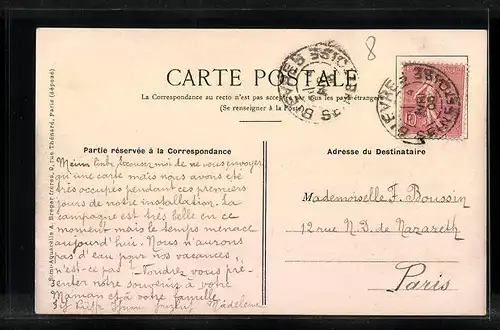 8
CARTE POSTALE
La Correspondance au recto n'est pas acceptée par tous les pays étrangers
(Se renseigner à la Poste)
BIEVRES SEINE-ET-OISE
BIEVRES SEINE-ET-OISE
10
Partie réservée à la Correspondance
Adresse du Destinataire
excusez moi de ne vous envoyer
qu'une carte mais nous avons été
très occupés pendant ces premiers
jours de notre installation. La
campagne est très belle en ce
moment mais le temps menace
aujourd'hui. Nous n'aurons
pas d'eau pour nos vacances
n'est-ce pas! - Voudrez vous pré-
senter notre souvenir à votre
Maman et à votre famille
Madeleine
Mademoiselle F. Boussin
12 rue N. D. de Nazareth
Paris
Simi-Aquarelle A. Breger frères, 9, rue Thénard, Paris (déposé)